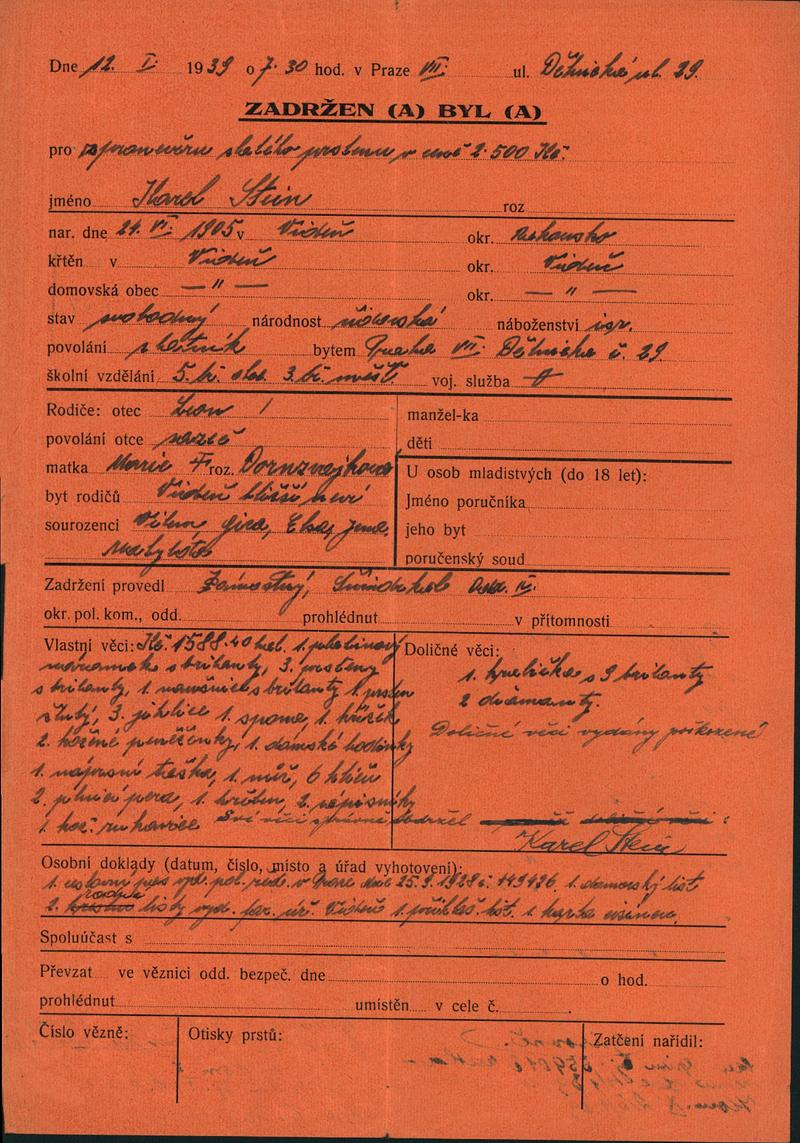 Dne 12. I. 1939 o 7.30 hod. v Praze VII. ul. Dělnická ul. 29.
ZADRŽEN (A) BYL (A)
pro zpronevěru zlatého prstenu v ceně 2.500 Kč.
jméno Karel Stein roz
nar. dne 24. VI. 1905 v Vídeň okr. Rakousko
křtěn v Vídeň okr. Vídeň
domovská obec — " — okr. — " —
stav svobodný národnost židovská náboženství isr.
povolání zlatník bytem Praha VII. Dělnická č. 29.
školní vzdělání 5. tř. ob. 3. tř. měšť. voj. služba
Rodiče: otec Leon manžel-ka
povolání otce děti
matka Marie roz.
byt rodičů Vídeň bližší neví
sourozenci Vilém, Elsa,
U osob mladistvých (do 18 let):
Jméno poručníka
jeho byt
poručenský soud
Zadržení provedl odd. IV.
okr. pol. kom., odd. prohlédnut v přítomnosti
Vlastní věci: Kč 1588.40 hal. 1 platinový
náramek s brilanty, 3 prsteny
s brilanty, 1 naušnice s brilanty 1 prsten
žlutý, 3 jehlice 1 spona, 1 křížek
2 kožené peněženky, 1 dámské hodinky
1 náprsní taška, 1 nůž, 6 klíčů
2 plnicí pera, 1 2 zápisníky
1 kož. rukavice Své věci správně obdržel
Doličné věci:
1 s 9 brilanty
2 diamanty.
Doličné věci vydány poškozené
Karel Stein
Osobní doklady (datum, číslo, místo a úřad vyhotovení):
1 cestovní pas vyd. pol. řed. v Praze dne 25.9.1928 č. 149496. 1 domovský list
2 rodné listy vyd. far. úř. Vídeň 1 přihláš. 1 karta
Spoluúčast s
Převzat ve věznici odd. bezpeč. dne o hod.
prohlédnut umístěn v cele č.
Číslo vězně: Otisky prstů: Zatčení nařídil: